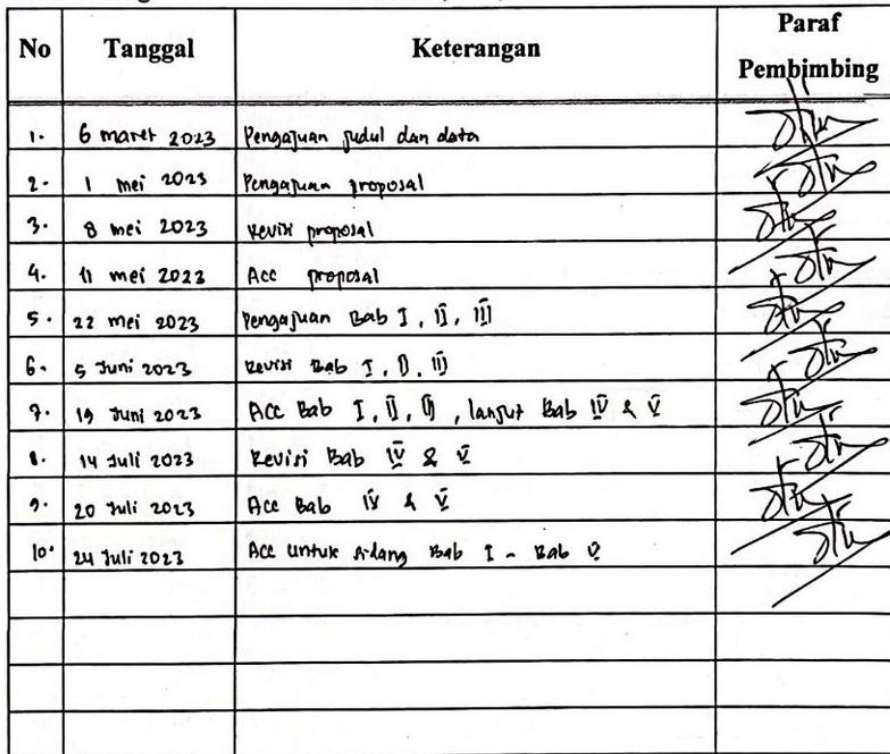 No Tanggal Keterangan Paraf Pembimbing
1. 6 maret 2023 Pengajuan judul dan data
2. 1 mei 2023 Pengajuan proposal
3. 8 mei 2023 Revisi proposal
4. 11 mei 2023 Acc proposal
5. 22 mei 2023 Pengajuan Bab I, II, III
6. 5 Juni 2023 Revisi Bab I, II, III
7. 19 Juni 2023 Acc Bab I, II, III, lanjut Bab IV & V
8. 14 Juli 2023 Revisi Bab IV & V
9. 20 Juli 2023 Acc Bab IV & V
10. 24 Juli 2023 Acc Untuk sidang Bab I - Bab V